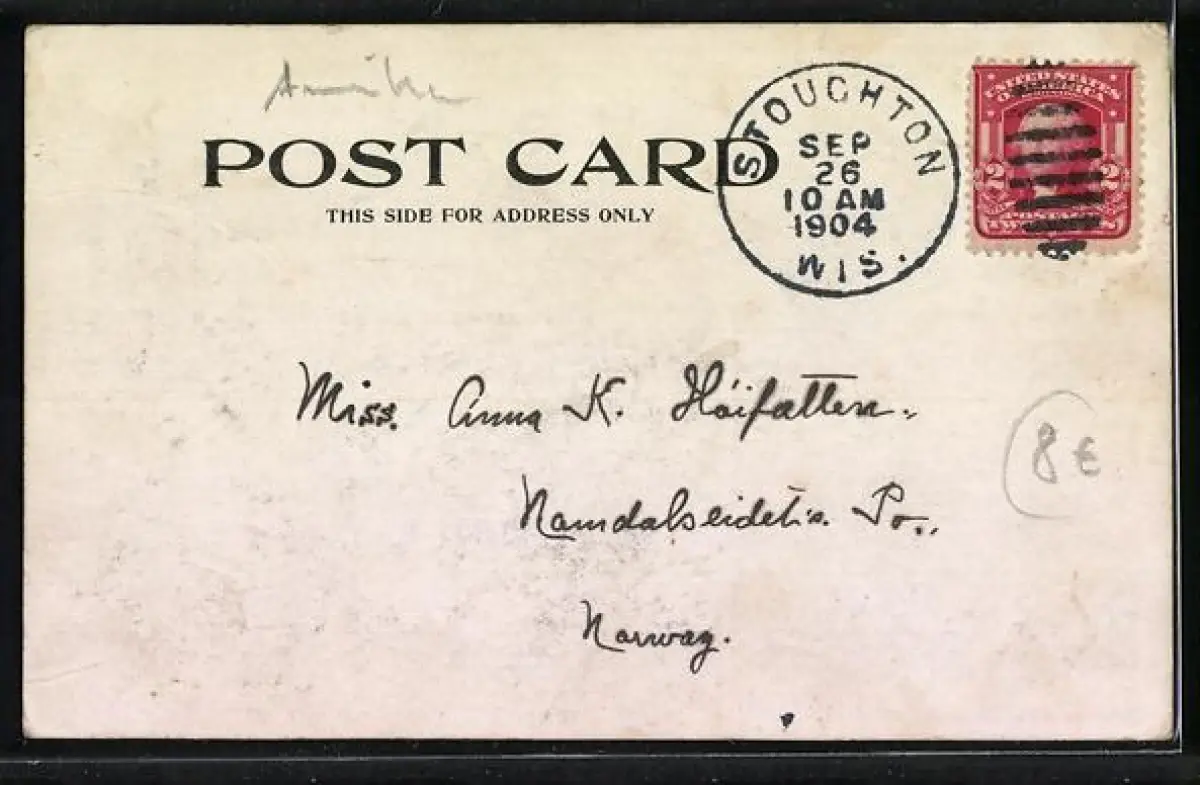 POST CARD
THIS SIDE FOR ADDRESS ONLY
STOUGHTON
SEP
26
10 AM
1904
WIS.
UNITED STATES
OF AMERICA
2 2
POSTAGE
Miss. Anna K. Höifatten.
Namdalseidet's. Po.
Norway.
8 €